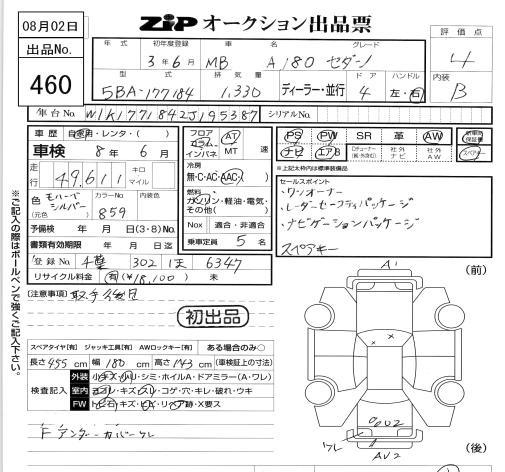 08月02日
出品No.
460
ZIP オークション出品票
年式 初年度登録 車名 グレード
3年6月 MB A180 セダン
型式 排気量 ディーラー・並行 ドア ハンドル
5BA-177184 1,330 4 左・右
評価点
4
内装
B
車台No. W1K1771842J195387 シリアルNo.
車歴 自家用・レンタ・( )
車検 8年6月
走行 49,611 キロ マイル
色 モハーベシルバー (元色) カラーNo 859 内装色
予備検 年 月 日(3・8)No.
書類有効期限 年 月 日迄
登録No 千葉 302 6347
リサイクル料金 有(¥18,100) 未
フロア コラム インパネ AT MT 速
冷房 無・C・AC・AAC
燃料 ガソリン・軽油・電気・その他( )
Nox 適合・非適合
乗車定員 5名
PS PW SR 革 AW 新車時保証書
ナビ エアB 社外ナビ 社外AW スペアキー
※上記太枠内は標準装備品
セールスポイント
・ワンオーナー
・レーダーセーフティパッケージ
・ナビゲーションパッケージ
スペアキー
[注意事項]
初出品
スペアタイヤ[有] ジャッキ工具[有] AWロックキー[有] ある場合のみ○
長さ455cm 幅180cm 高さ143cm (車検証上の寸法)
検査記入
外装 小キズ・凹・シミ・ホイルA・ドアミラー(A・ワレ)
室内 ヨゴレ・キズ・スレ・コゲ・穴・キレ・破れ・ウキ
FW トビ石・キズ・ヒビ・リペア跡・X要ス
Fアンダーカバーワレ
※ご記入の際はボールペンで強くご記入下さい。
A1
(前)
ワレ
AU2
(後)